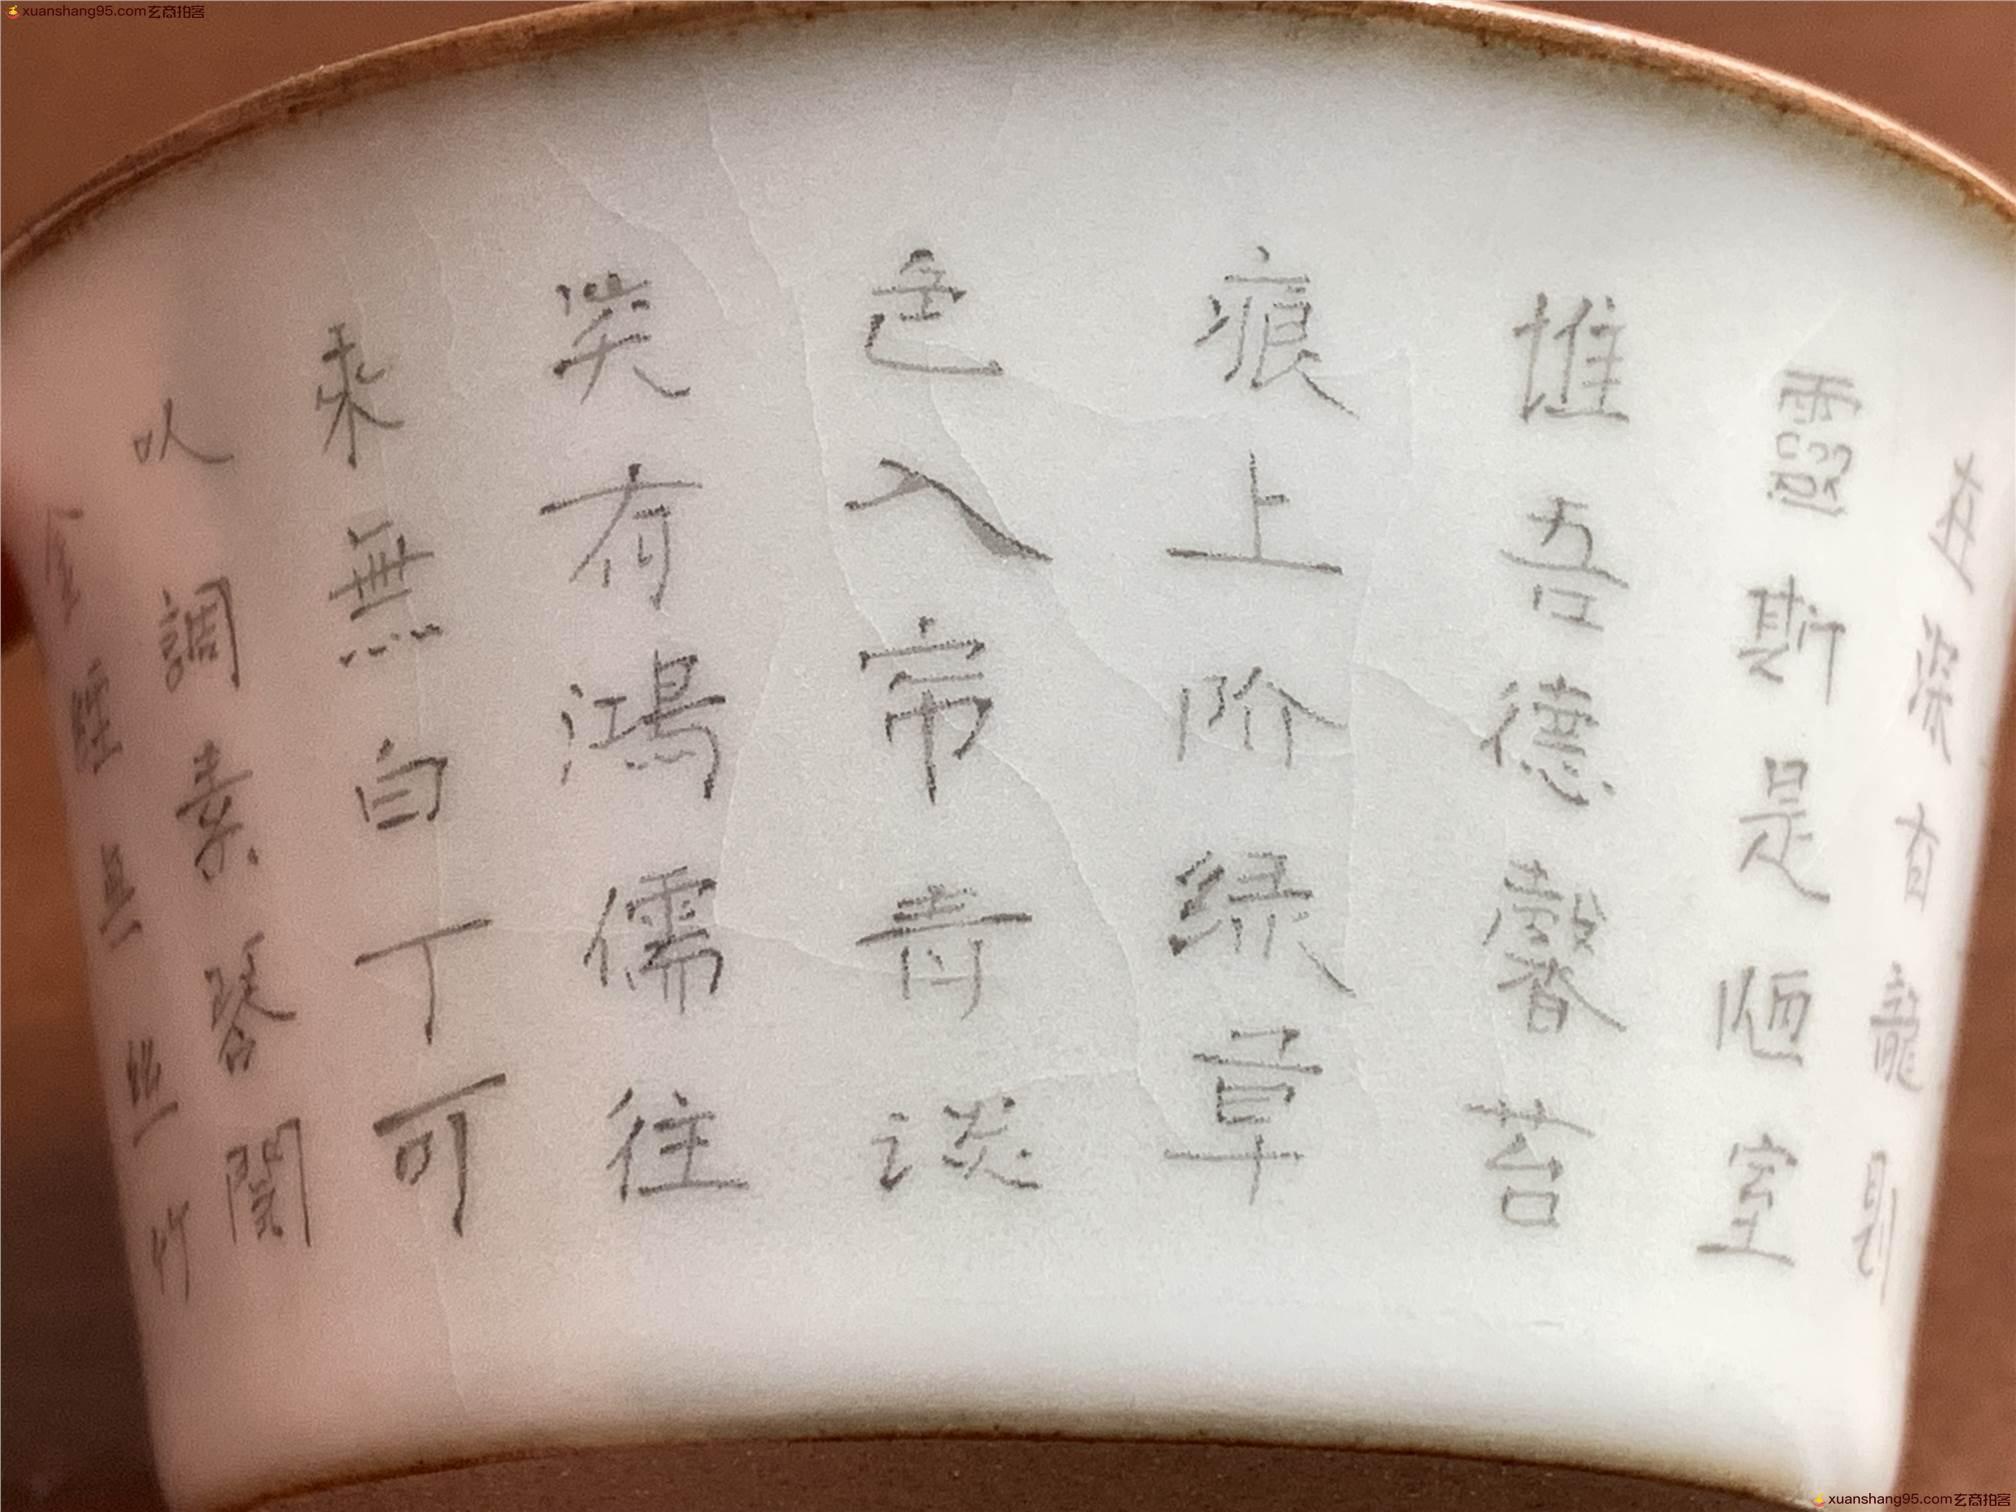 xuanshang95.com玄商拍客
在深有龍則
靈斯是陋室
惟吾德馨苔
痕上阶绿草
色入帘青谈
笑有鴻儒往
来無白丁可
以調素琴閱
金經無丝竹
xuanshang95.com玄商拍客